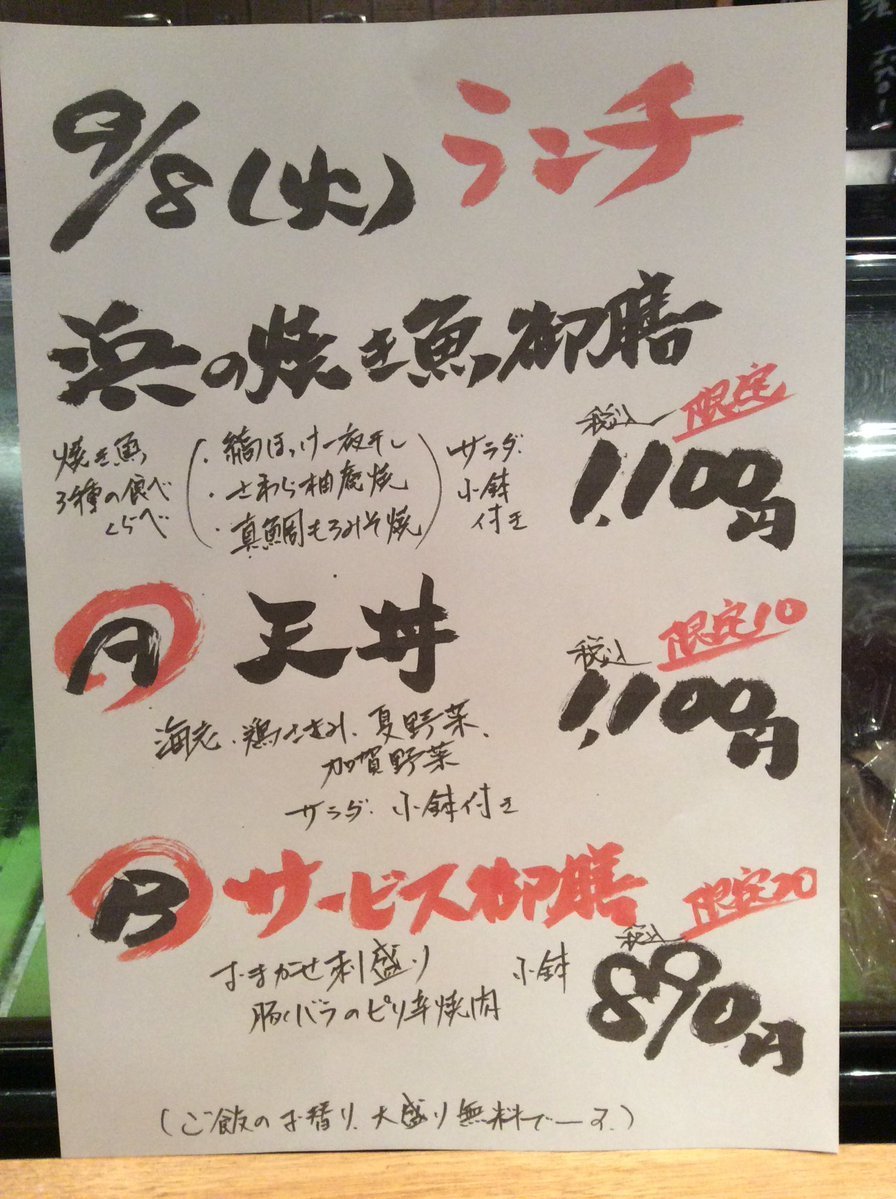 9/8(火) ランチ
浜の焼き魚御膳
焼き魚
3種の食べ
くらべ
・縞ほっけ一夜干し
・さわら柚庵焼
・真鯛もろみそ焼
サラダ.
小鉢
付き
税込
限定
1,100円
A 天丼
海老、鶏ささみ、夏野菜、
加賀野菜
サラダ. 小鉢付き
税込
限定10
1,100円
B サービス御膳
おまかせ刺盛り 小鉢
豚バラのピリ辛焼肉
税込
限定20
890円
(ご飯のお替り、大盛り無料でーす。)